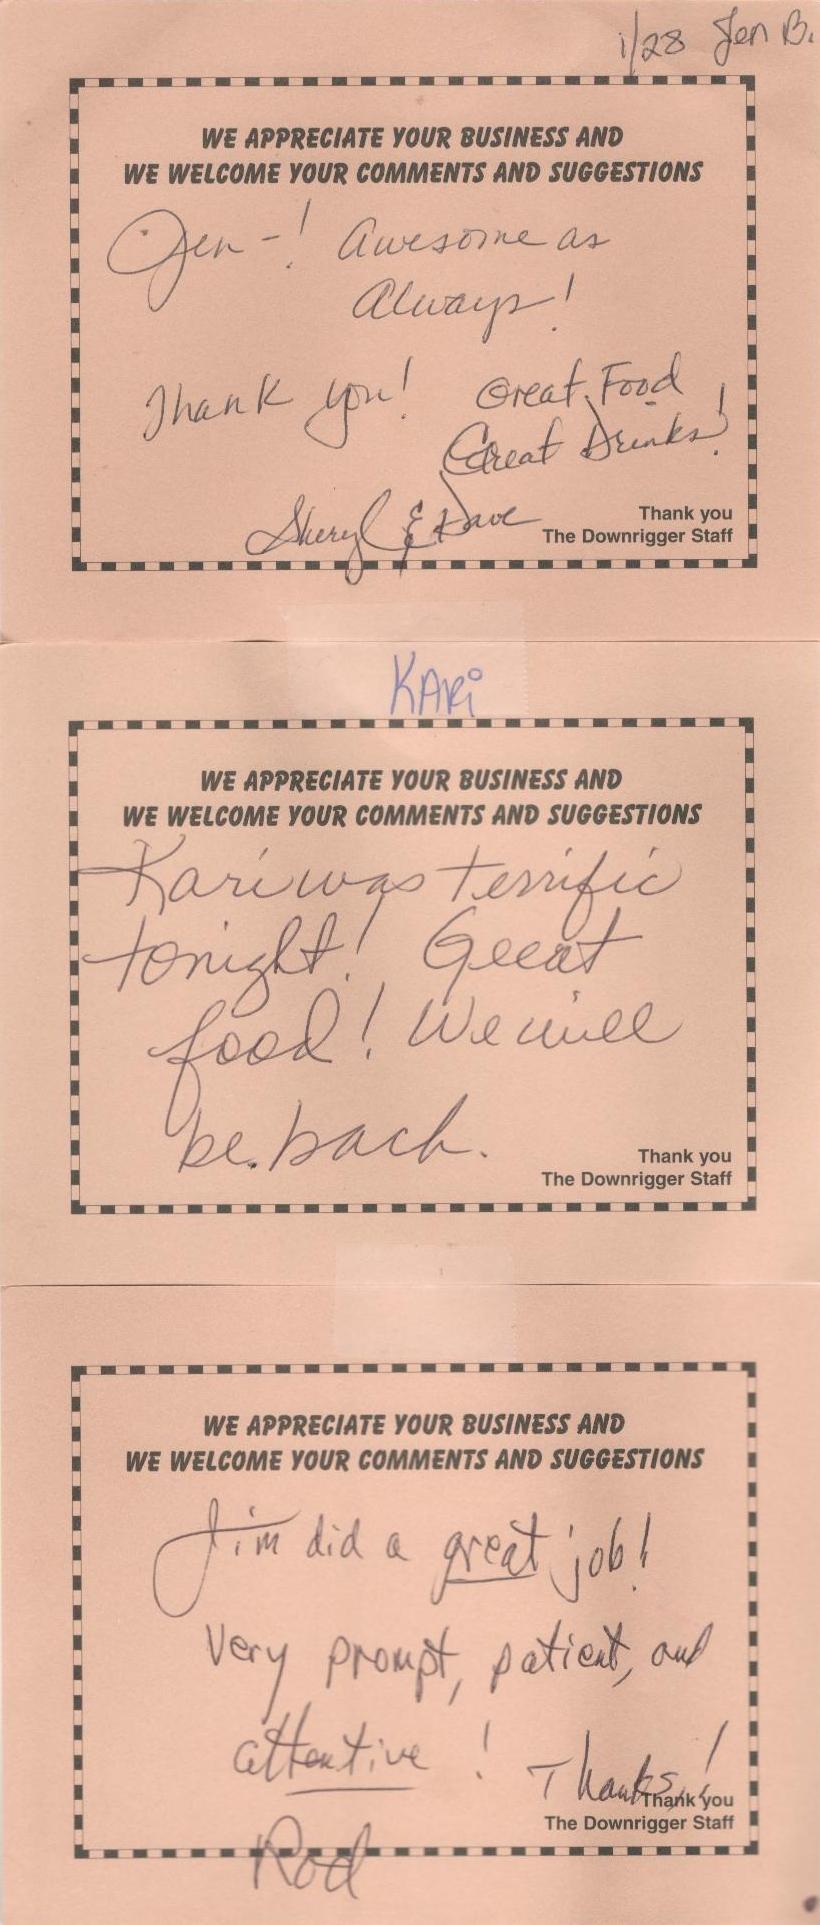 1/28 Jen B.
WE APPRECIATE YOUR BUSINESS AND
WE WELCOME YOUR COMMENTS AND SUGGESTIONS
Jen-! Awesome as
Always!
Thank you! Great Food
Great Drinks!
Sheryl & Dave
Thank you
The Downrigger Staff
KARi
WE APPRECIATE YOUR BUSINESS AND
WE WELCOME YOUR COMMENTS AND SUGGESTIONS
Kari was terrific
tonight! Great
food! We will
be back.
Thank you
The Downrigger Staff
WE APPRECIATE YOUR BUSINESS AND
WE WELCOME YOUR COMMENTS AND SUGGESTIONS
Jim did a great job!
Very prompt, patient, and
attentive! Thanks!
Thank you
The Downrigger Staff
Rod